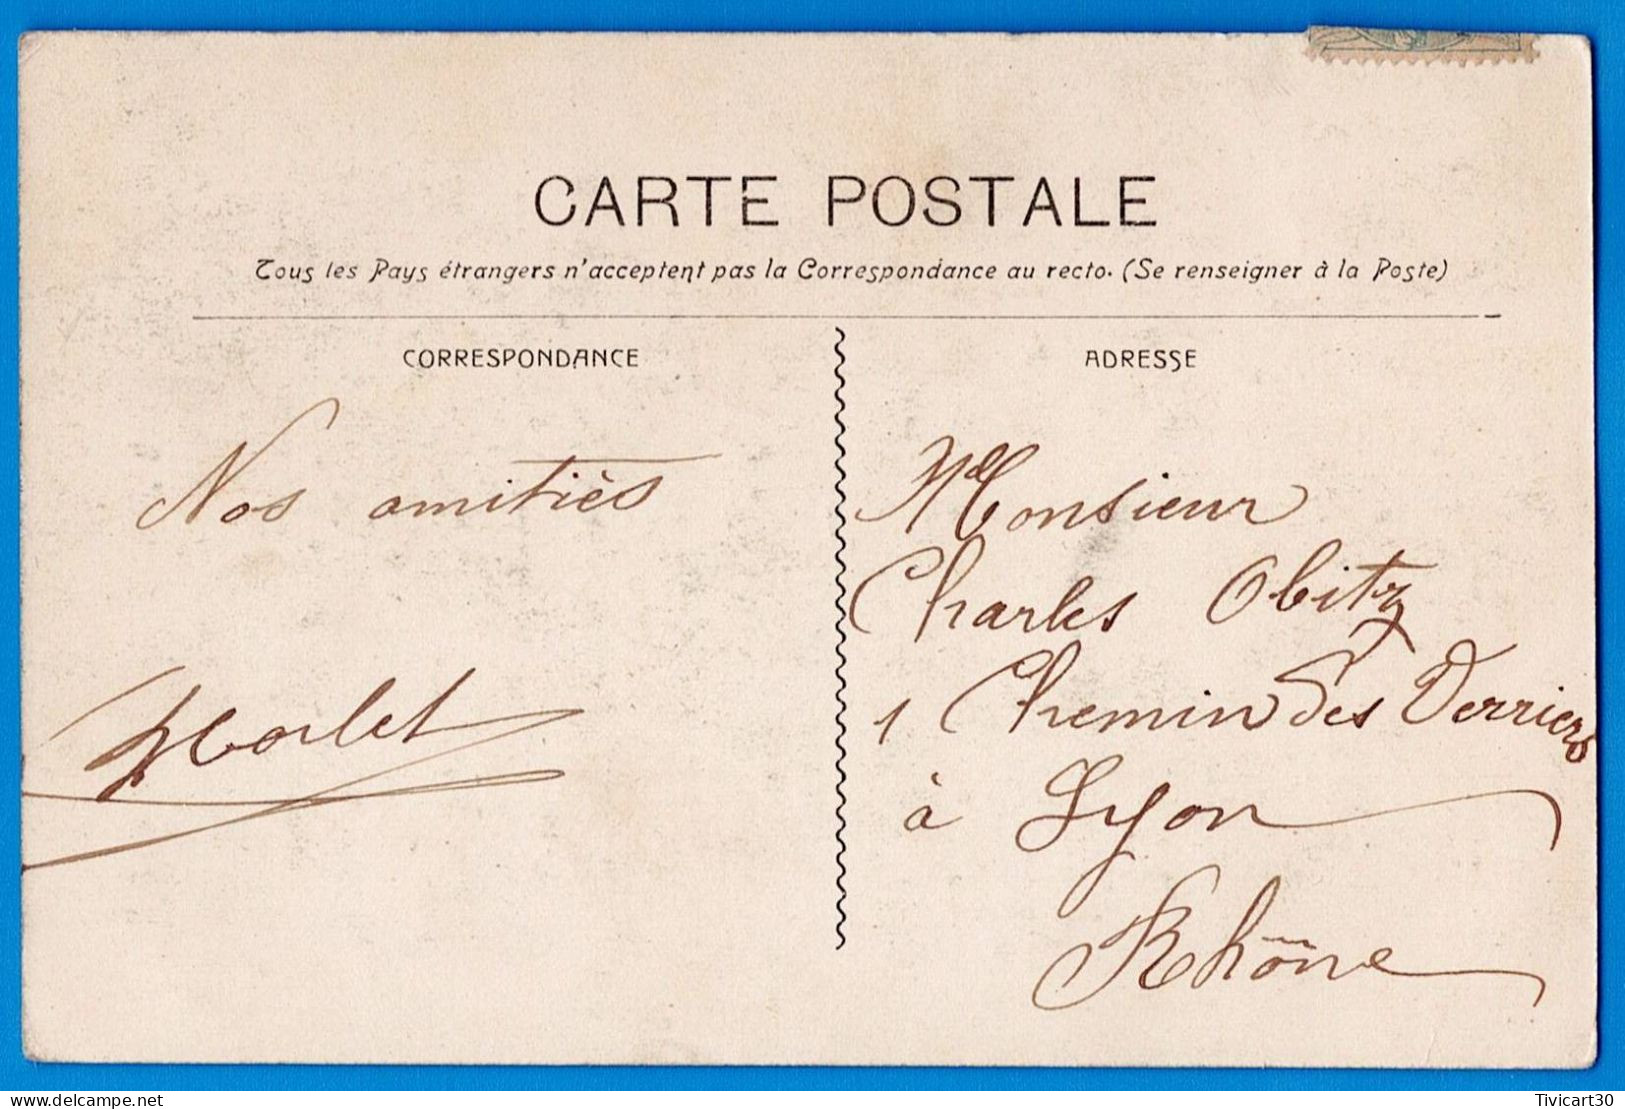 CARTE POSTALE
Tous les Pays étrangers n'acceptent pas la Correspondance au recto. (Se renseigner à la Poste)
CORRESPONDANCE
Nos amitiés
Morlet
ADRESSE
Monsieur
Charles Obitz
1 Chemin des Derriers
à Lyon
Rhône
delcampe.net
Tivicart30